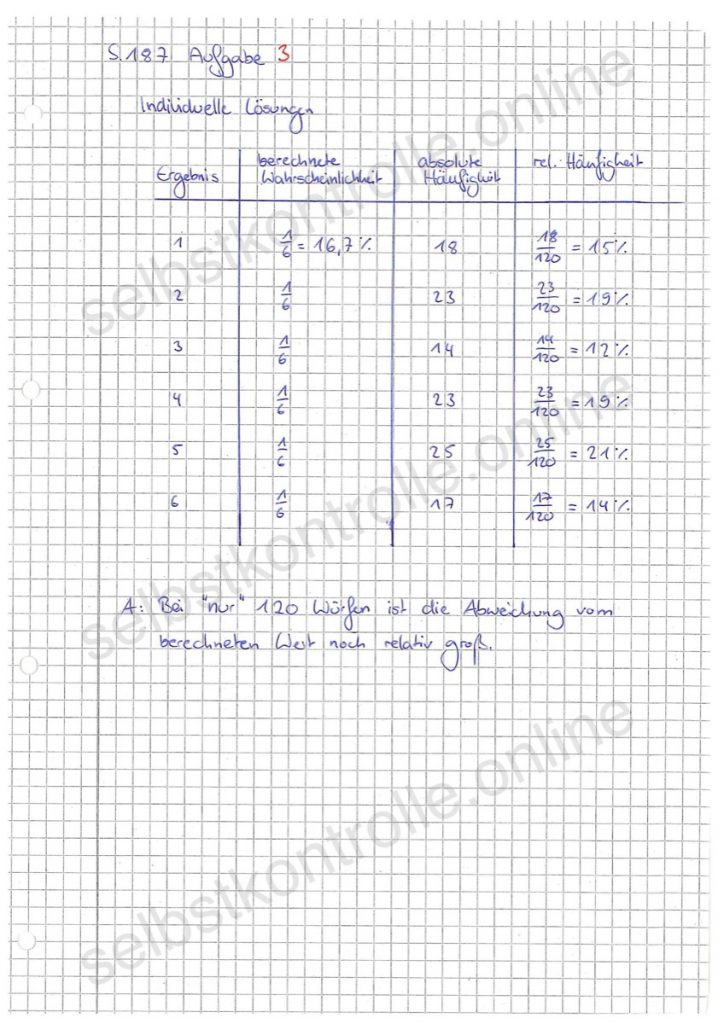 S.187 Aufgabe 3
Individuelle Lösungen
Ergebnis berechnete Wahrscheinlichkeit absolute Häufigkeit rel. Häufigkeit
1 1/6 = 16,7% 18 18/120 = 15%
2 1/6 23 23/120 = 19%
3 1/6 14 14/120 = 12%
4 1/6 23 23/120 = 19%
5 1/6 25 25/120 = 21%
6 1/6 17 17/120 = 14%
A: Bei "nur" 120 Würfen ist die Abweichung vom
berechneten Wert noch relativ groß.
selbstkontrolle.online
selbstkontrolle.online
selbstkontrolle.online